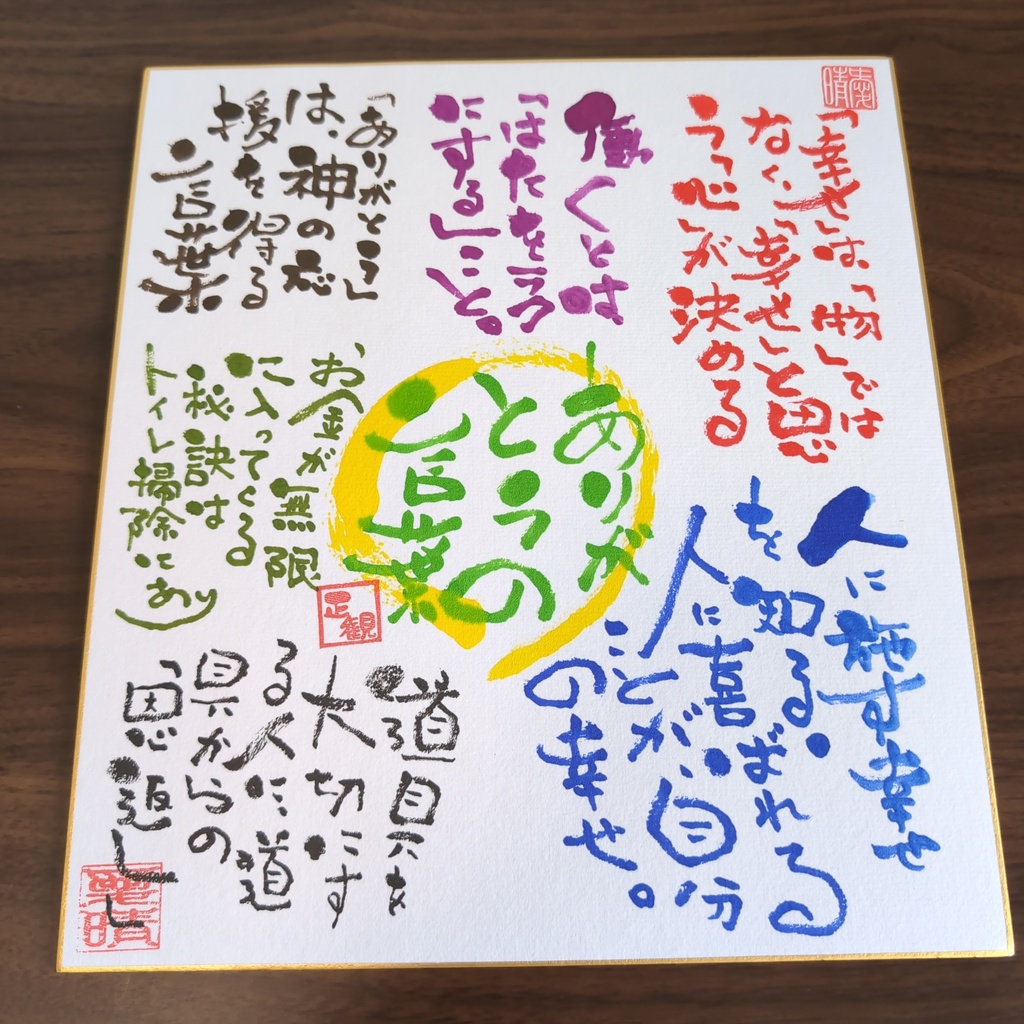 「幸せ」は、「物」では
なく、「幸せ」と思
う「心」が決める
働くとは
「はたをラク
にする」こと。
「ありがとう」
は、神の応
援を得る
言葉
ありが
とうの
言葉
人に施す幸せ
を知る。
人に喜ばれる
ことが、自分
の幸せ。
お金が無限
に入ってくる
秘訣は
トイレ掃除にあり
正観
道具を
大切にす
る人に、道
具からの
「恩返し」